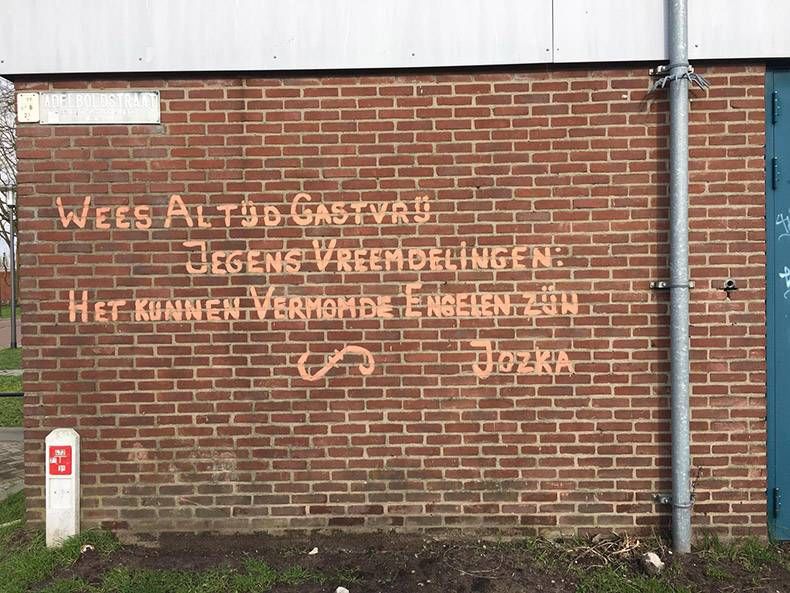 ADELBOLDSTRAAT
WEES ALTIJD GASTVRIJ
JEGENS VREEMDELINGEN:
HET KUNNEN VERMOMDE ENGELEN ZIJN
JOZKA